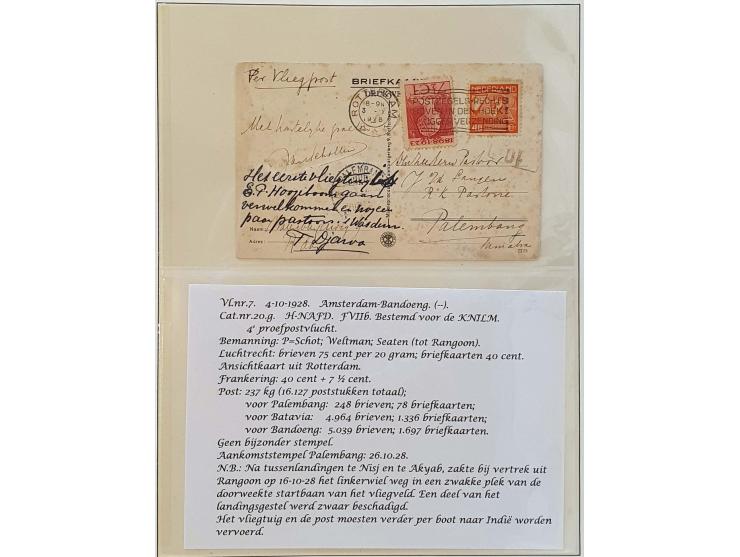 Per Vliegpost
BRIEFKAART
ROTTERDAM
1928
POSTZEGELS RECHTS
BOVEN IN DEN HOEK!
NEDERLAND
1898-1923
Met hartelijke
Het eerste vliegtuig
verwelkomen
Djawa
Naam:
Adres:
R.K. Pastorie
Palembang
Sumatra
Vl.nr.7. 4-10-1928. Amsterdam-Bandoeng. (--).
Cat.nr.20.g. H-NAFD. FVIIb. Bestemd voor de KNILM.
4e proefpostvlucht.
Bemanning: P=Schot; Weltman; Seaten (tot Rangoon).
Luchtrecht: brieven 75 cent per 20 gram; briefkaarten 40 cent.
Ansichtkaart uit Rotterdam.
Frankering: 40 cent + 7 ½ cent.
Post: 237 kg (16.127 poststukken totaal);
voor Palembang: 248 brieven; 78 briefkaarten;
voor Batavia: 4.964 brieven; 1.336 briefkaarten;
voor Bandoeng: 5.039 brieven; 1.697 briefkaarten.
Geen bijzonder stempel.
Aankomststempel Palembang: 26.10.28.
N.B.: Na tussenlandingen te Nisj en te Akyab, zakte bij vertrek uit
Rangoon op 16-10-28 het linkerwiel weg in een zwakke plek van de
doorweekte startbaan van het vliegveld. Een deel van het
landingsgestel werd zwaar beschadigd.
Het vliegtuig en de post moesten verder per boot naar Indië worden
vervoerd.